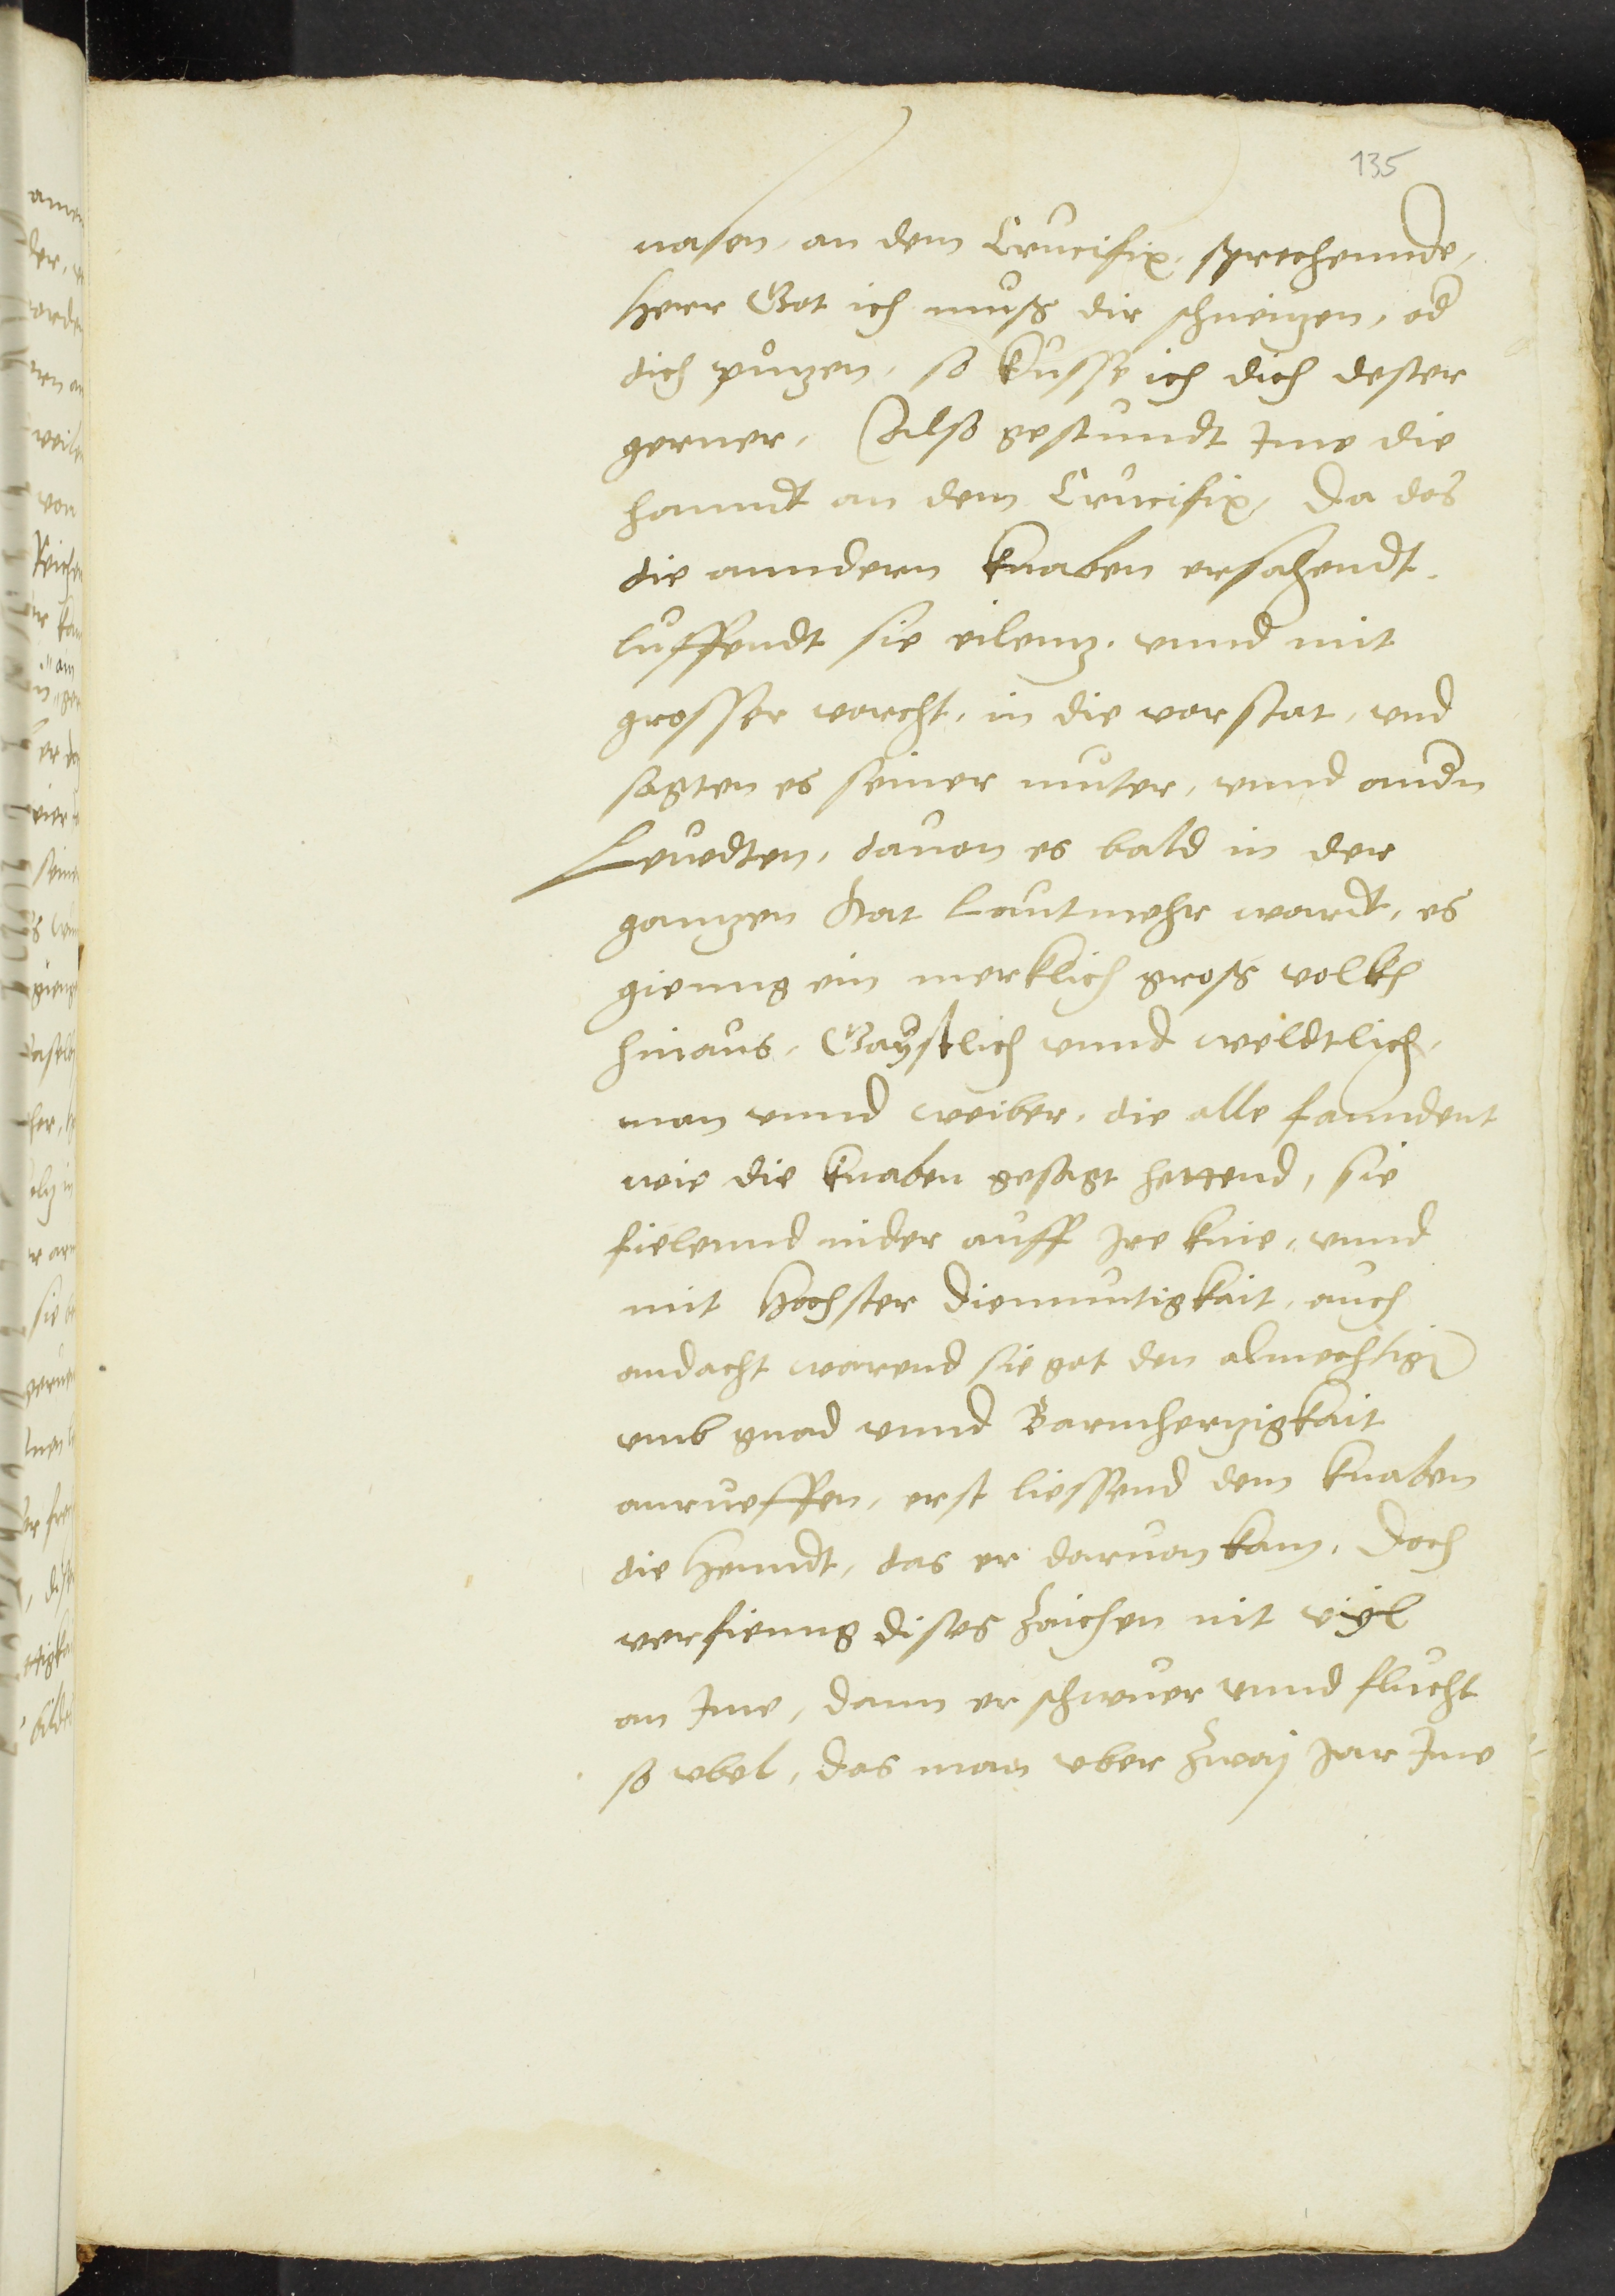 135
nasen, an dem Crucifix, sprechennde,
Herr Got ich muß dir schneuzen, od
dich putzen, so kusse ich dich dester
gerner, Also gestundt Ime die
hanndt an dem Crucifix, Da das
die anndern knaben ersahendt.
luffendt sie eilentz, vnnd mit
grosser vorcht, in die vorstat, vnd
sagten es seiner muter, vnnd andn
Leuedten, dauon es bald in der
gantzen stat lautmehr wardt, es
gienng ein merklich groß volkh
hinaus, Gaystlich vnnd weldtlich,
man vnnd weiber, die alle fanndent
wie die knaben gesagt hettend, sie
fielennd nider auff Ire knie, vnnd
mit Hochster diemuttigkait, auch
andacht warend sie got den almechtign
vmb gnad vnnd Barmhertzigkait
anrueffen, erst liessend dem knaben
die Henndt, das er daruon kam, Doch
verfienng dises Zaichen nit viyl
an Ime, dann er schwuer vnnd flucht
so vbel, das man vber Zway Jar Ime